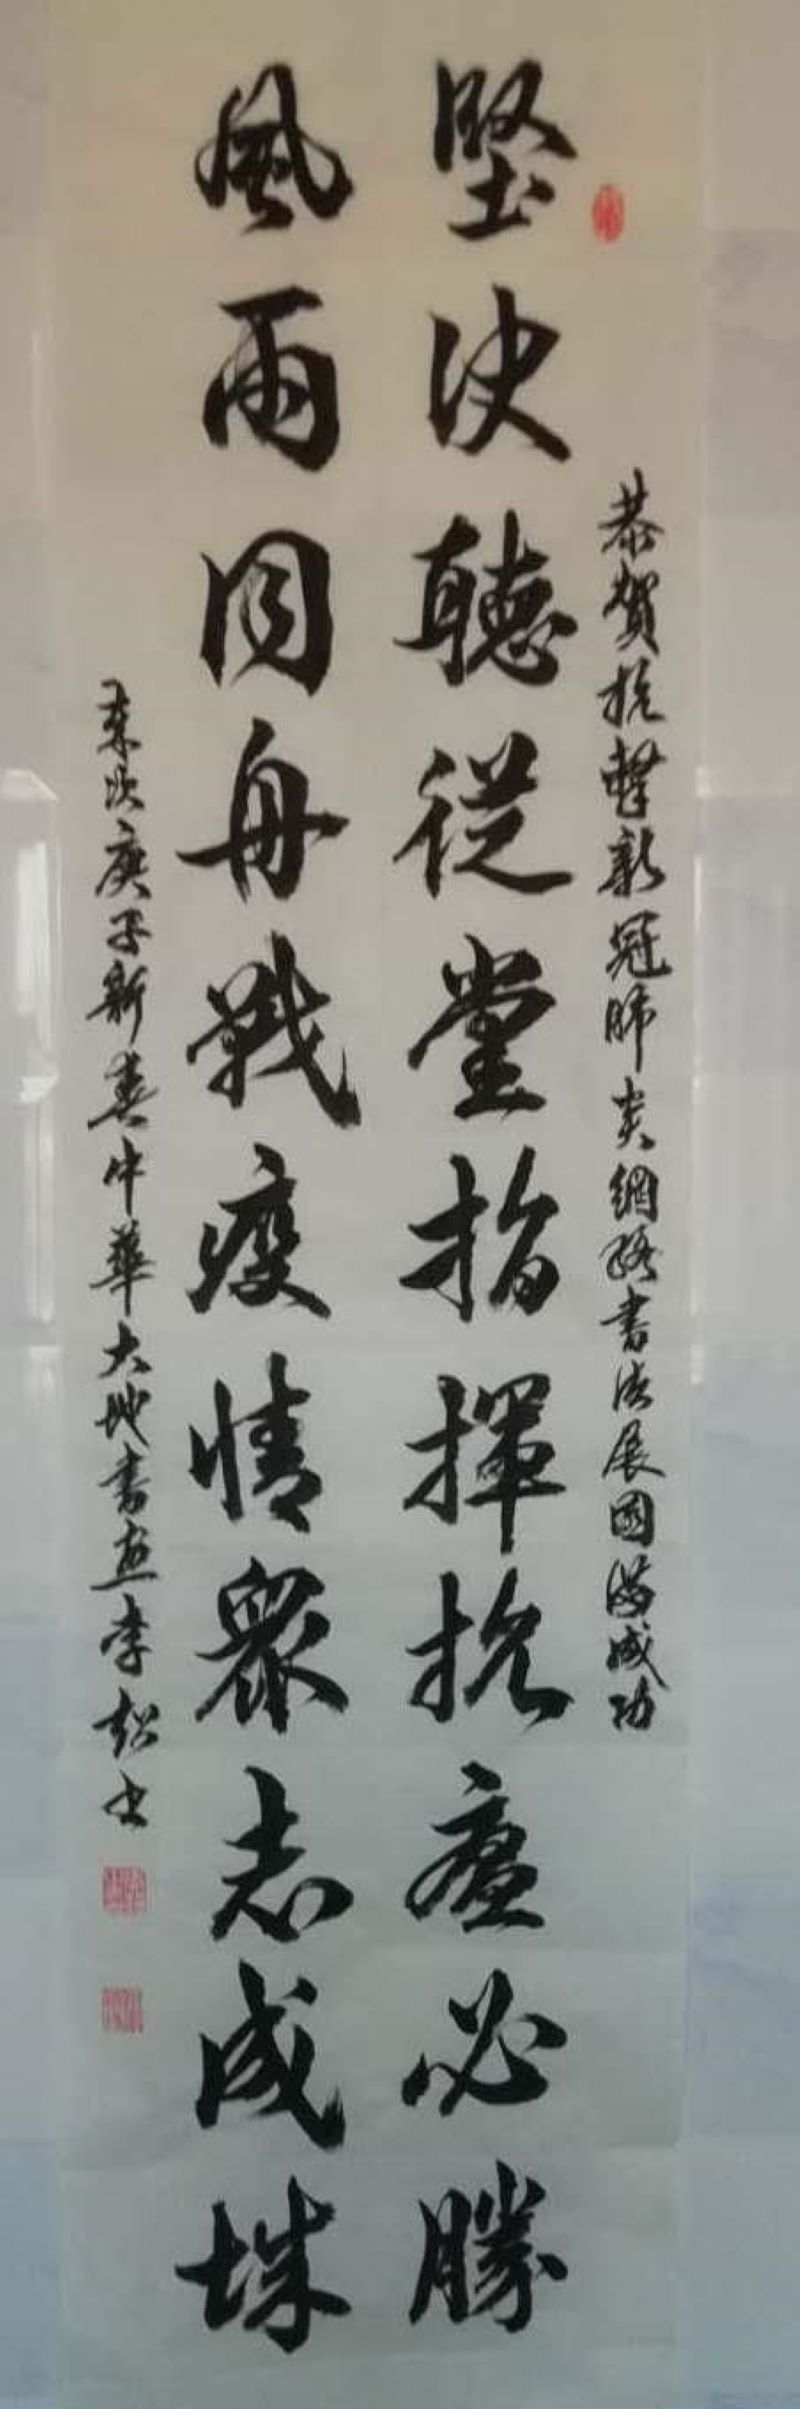 恭賀抗擊新冠肺炎網路書法展圓滿成功
堅決聽從黨指揮抗瘟必勝
風雨同舟戰疫情眾志成城
歲次庚子新春中華大地書畫李超書